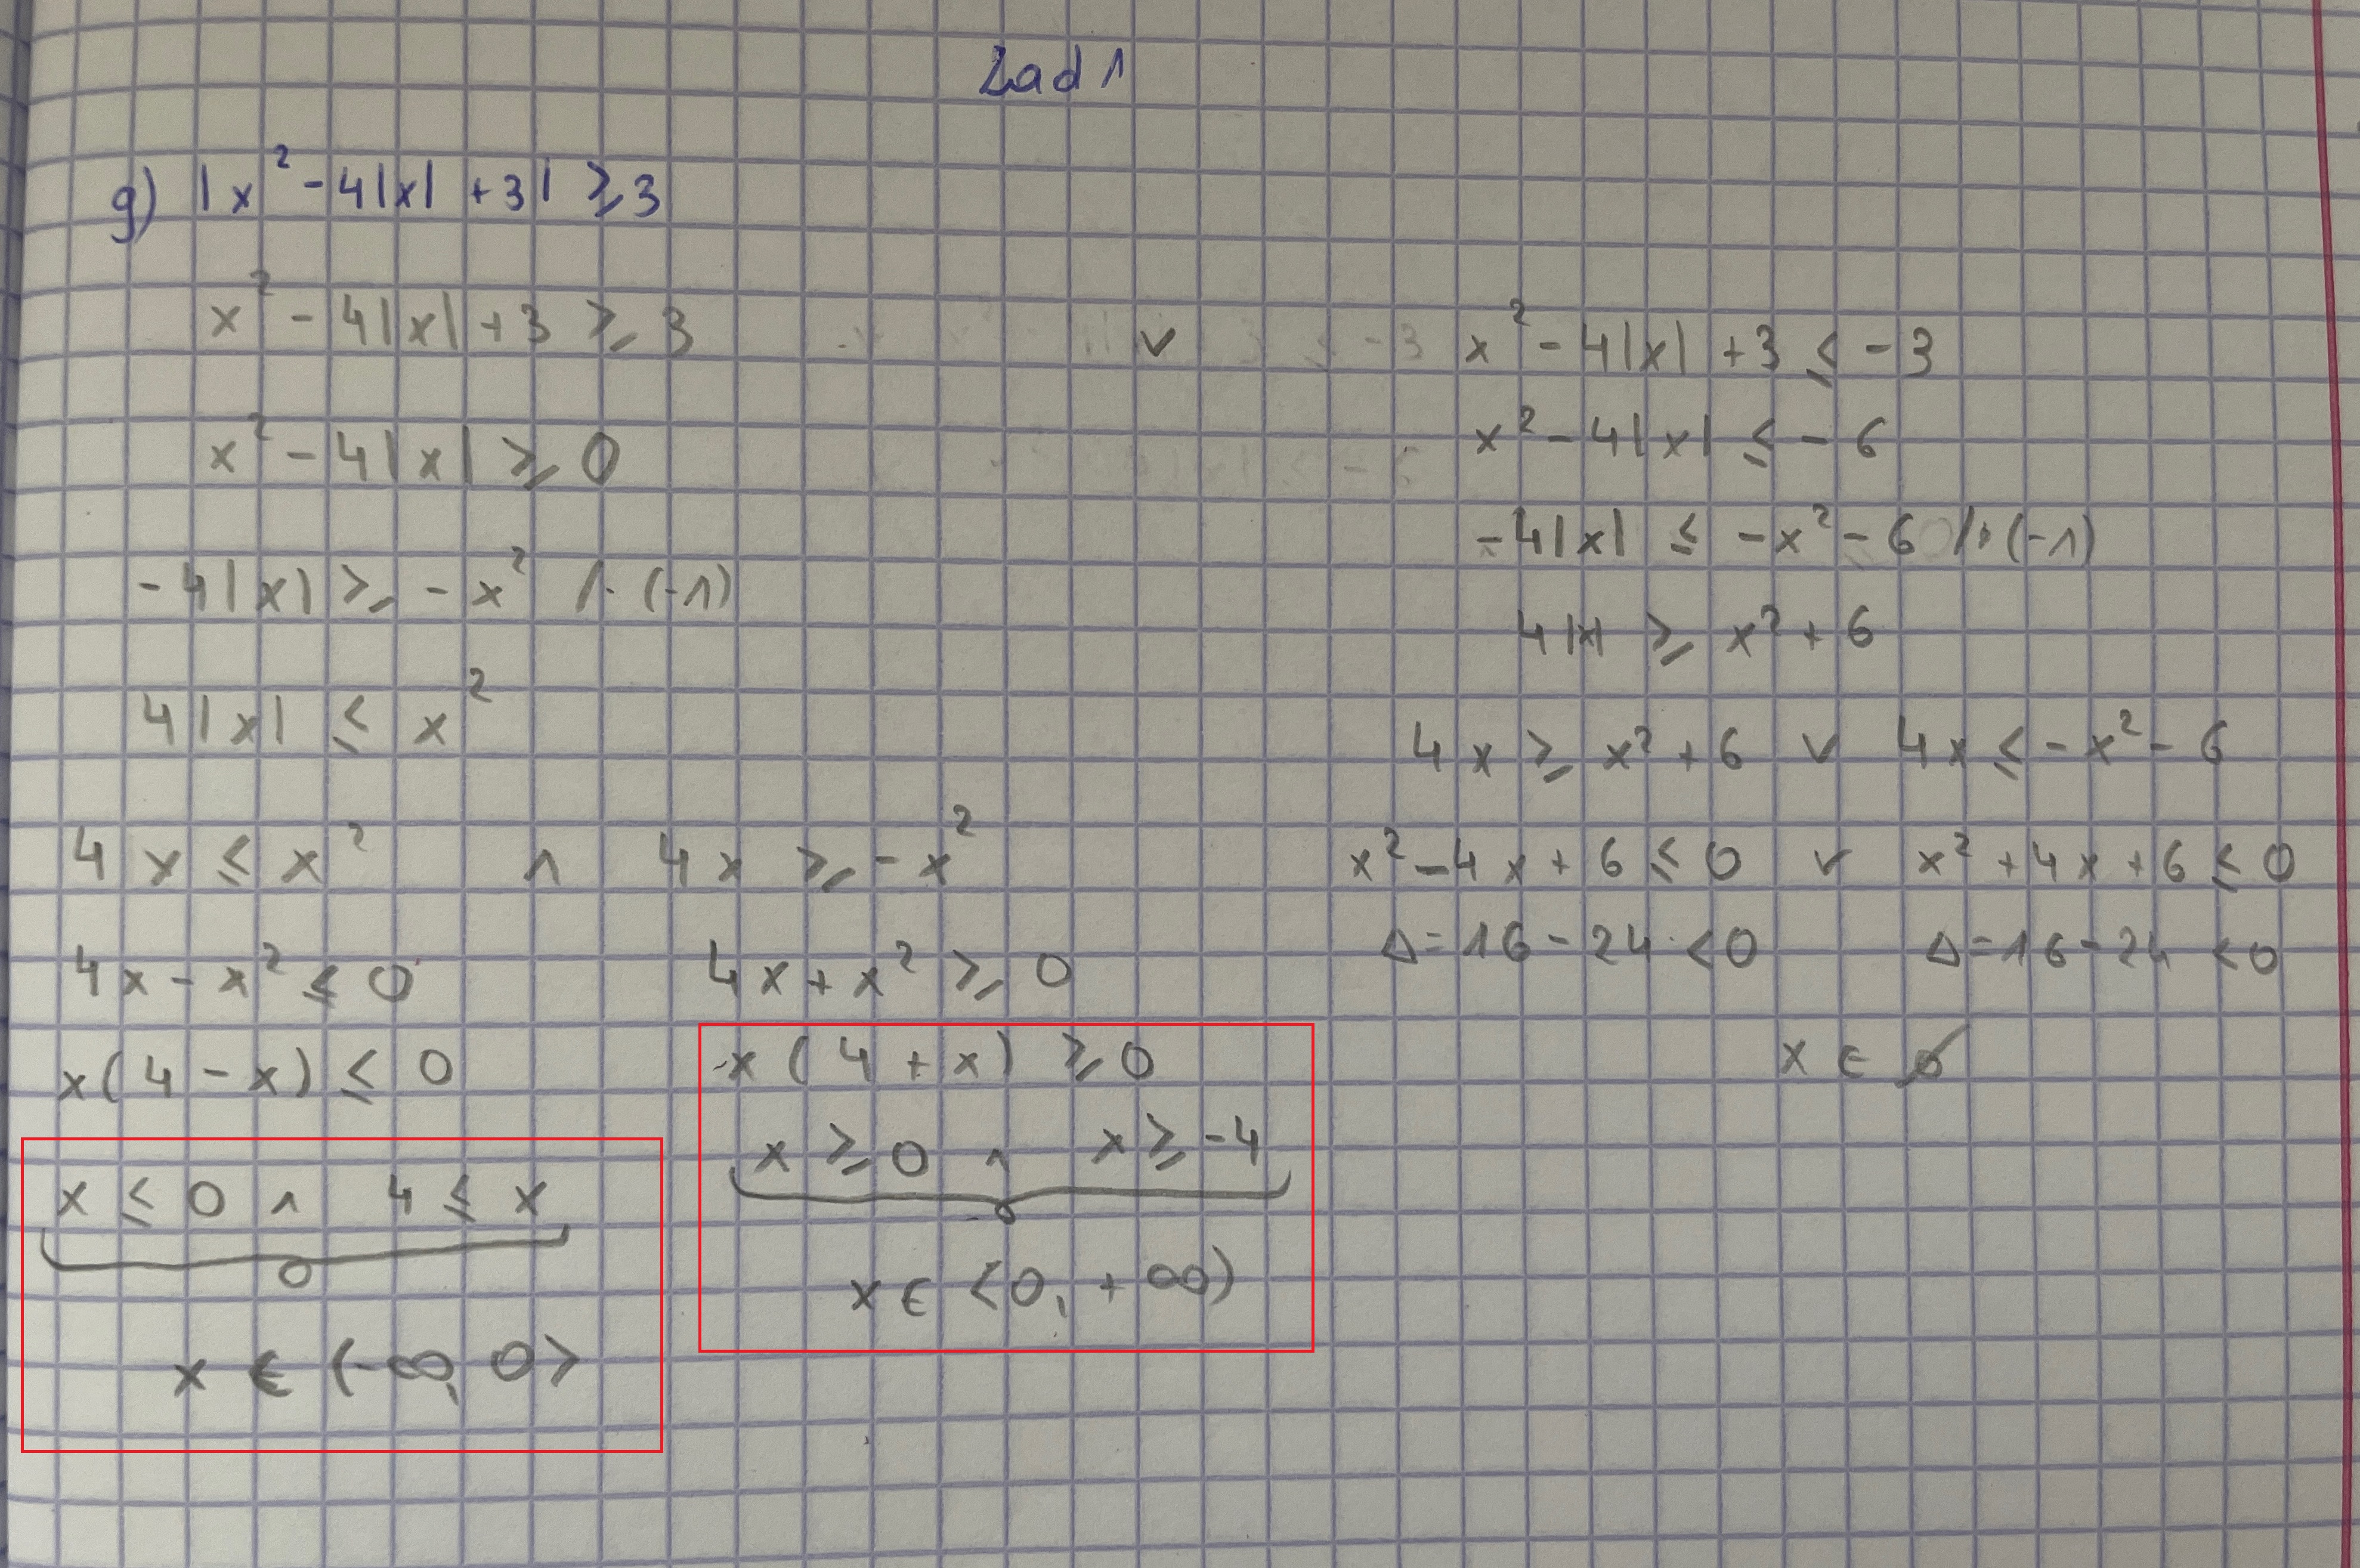 Zad 1
g) |x² - 4|x| + 3| ⩾ 3
x² - 4|x| + 3 ⩾ 3 ∨ x² - 4|x| + 3 ⩽ -3
x² - 4|x| ⩾ 0
-4|x| ⩾ -x² /· (-1)
4|x| ⩽ x²
4x ⩽ x² ∧ 4x ⩾ -x²
4x - x² ⩽ 0
x(4 - x) ⩽ 0
x ⩽ 0 ∧ 4 ⩽ x
x ∈ (-∞, 0>
4x + x² ⩾ 0
x(4 + x) ⩾ 0
x ⩾ 0 ∧ x ⩾ -4
x ∈ <0, +∞)
x² - 4|x| ⩽ -6
-4|x| ⩽ -x² - 6 /· (-1)
4|x| ⩾ x² + 6
4x ⩾ x² + 6 ∨ 4x ⩽ -x² - 6
x² - 4x + 6 ⩽ 0 ∨ x² + 4x + 6 ⩽ 0
Δ = 16 - 24 < 0 Δ = 16 - 24 < 0
x ∈ ∅